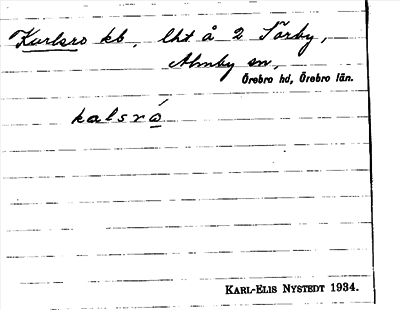 Karlsro kb, lht å 2 Törby,
Almby sn,
Örebro hd, Örebro län.
kalsró
KARL-ELIS NYSTEDT 1934.